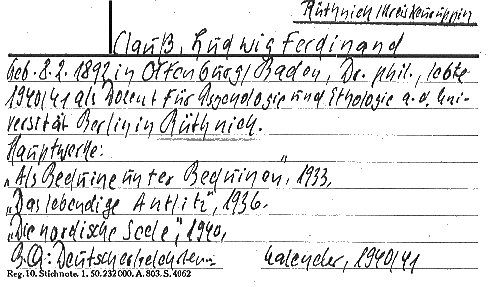 Rüthnich/Kreis Neuruppin
Clauß, Ludwig Ferdinand
Geb. 8.2. 1892 in Offenburg/Baden, Dr. phil., lebte
1940/41 als Dozent für Psychologie und Ethologie a.d. Uni-
versität Berlin in Rüthnich.
Hauptwerke:
„Als Beduine unter Beduinen", 1933,
„Das lebendige Antlitz", 1936.
„Die nordische Seele", 1940,
B.Q.: Deutscher Gelehrten- Kalender, 1940/41
Reg. 10. Stichnote. 1. 50. 232000. A. 803. S. 4062